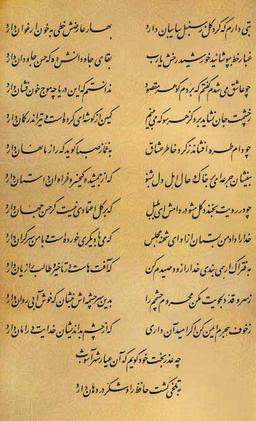 بتی دارم که گرد گل ز سنبل سایبان دارد بهار عارضش خطی به خون ارغوان دارد
غبار خط بپوشانید خورشید رخش یارب بقای جاودانش ده که حسن جاودان دارد
چو عاشق می شدم گفتم که بردم گوهر مقصود ندانستم که این دریا چه موج خون فشان دارد
ز چشمت جان نشاید برد کز هر سو که می بینم کمین از گوشه ای کرده است و تیر اندر کمان دارد
چو دام طره افشاند ز گرد خاطر عشاق به غماز صبا گوید که راز ما نهان دارد
بیفشان جرعه ای بر خاک و حال اهل دل بشنو که از جمشید و کیخسرو فراوان داستان دارد
چو در رویت بخندد گل مشو در دامش ای بلبل که بر گل اعتمادی نیست گر حسن جهان دارد
خدا را داد من بستان از او ای شحنه مجلس که می با دیگری خورده است و با من سر گران دارد
به فتراک ار همی بندی خدا را زود صیدم کن که آفت هاست در تأخیر و طالب را زیان دارد
ز سرو قد دلجویت مکن محروم چشمم را بدین سرچشمه اش بنشان که خوش آبی روان دارد
ز خوف هجرم ایمن کن اگر امید آن داری که از چشم بداندیشان خدایت در امان دارد
چه عذر بخت خود گویم که آن عیار شهرآشوب
به تلخی کشت حافظ را و شکر در دهان دارد